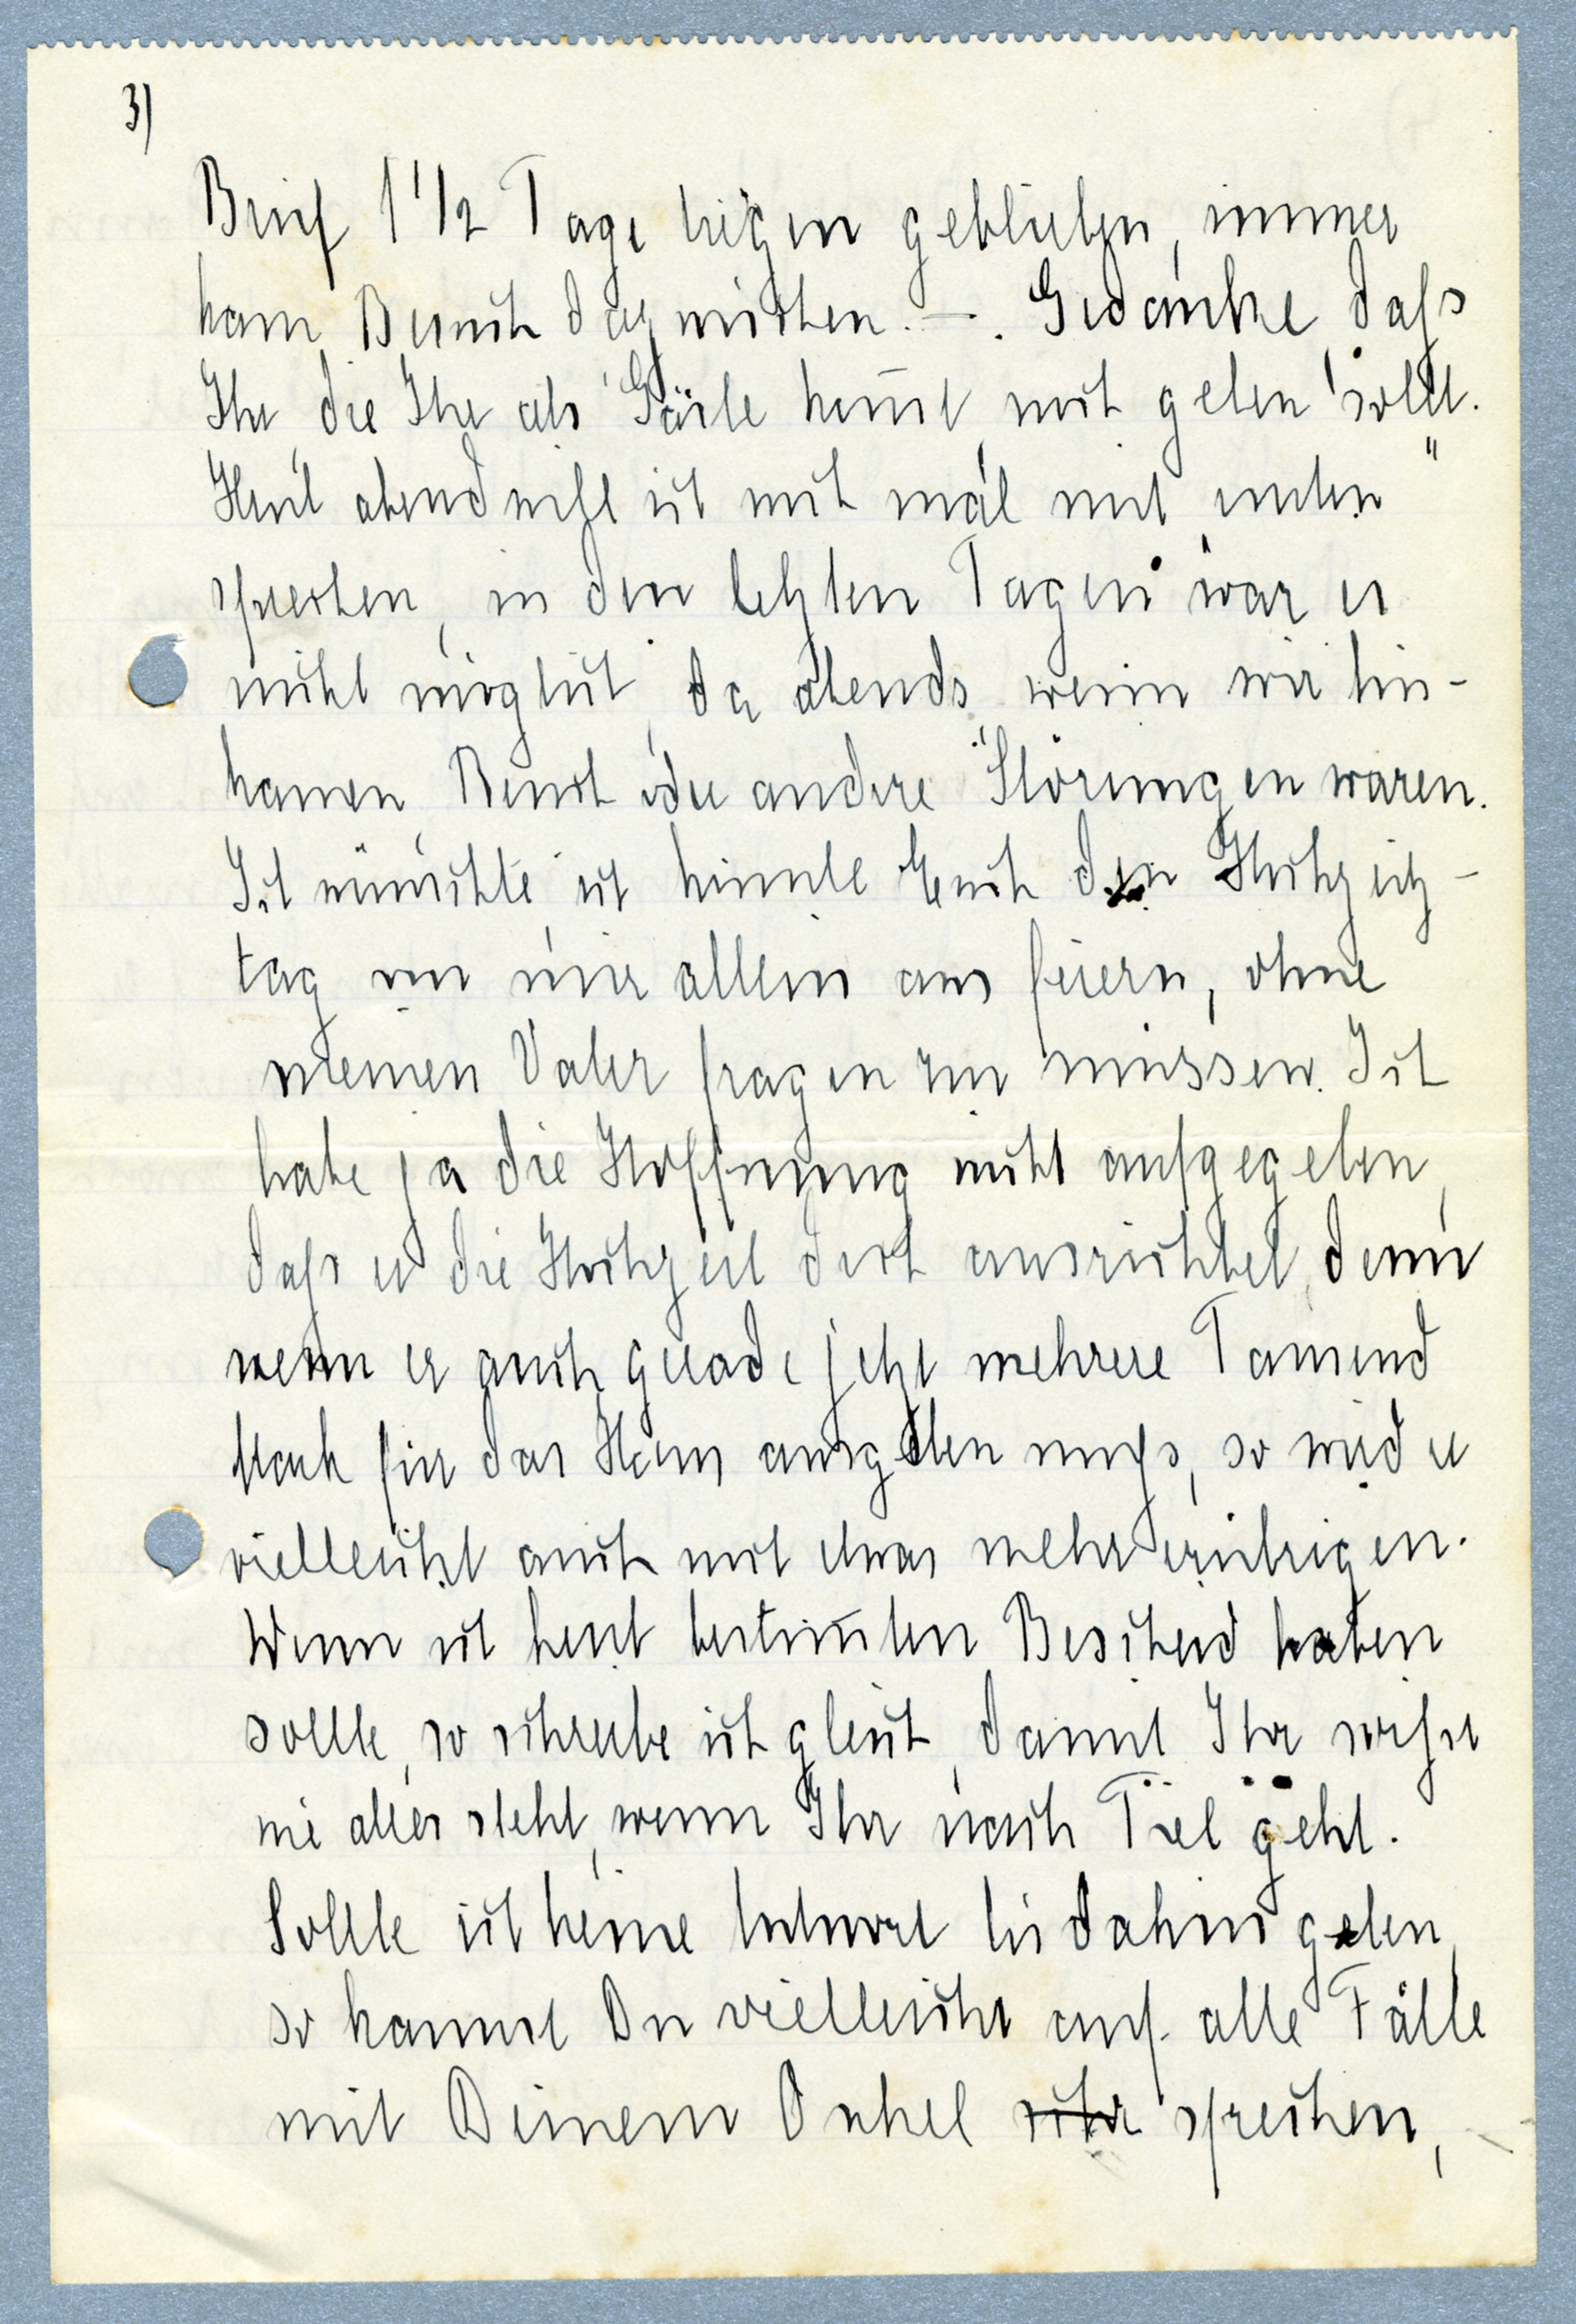 3)
Brief 1 1/2 Tage liegen geblieben, immer
kam Besuch dazwischen. —. Gedanke, dass
Ihr, die Ihr als Gäste kommt, mit geben sollt.
Heut abend will ich noch mal mit
sprechen, in den letzten Tagen war es
nicht möglich, da abends, wenn wir hin-
kamen Besuch oder andere Störungen waren.
Ich wünschte ich könnte Euch den Hochzeits-
tag von mir allein aus feiern, ohne
meinen Vater fragen zu müssen. Ich
habe ja die Hoffnung nicht aufgegeben,
dass er die Hochzeit doch ausrichtet, denn
wenn er auch gerade jetzt mehrere Tausend
Mark für das Haus ausgeben muss, so wird er
vielleicht auch noch etwas mehr erübrigen.
Wenn ich heut bestimmten Bescheid haben
sollte, so schreibe ich gleich, damit Ihr wisst
wie alles steht, wenn Ihr nach Tiel geht.
Sollte ich keine Antwort bis dahin geben,
so kannst Du vielleicht auf alle Fälle
mit Deinem Onkel sprechen,